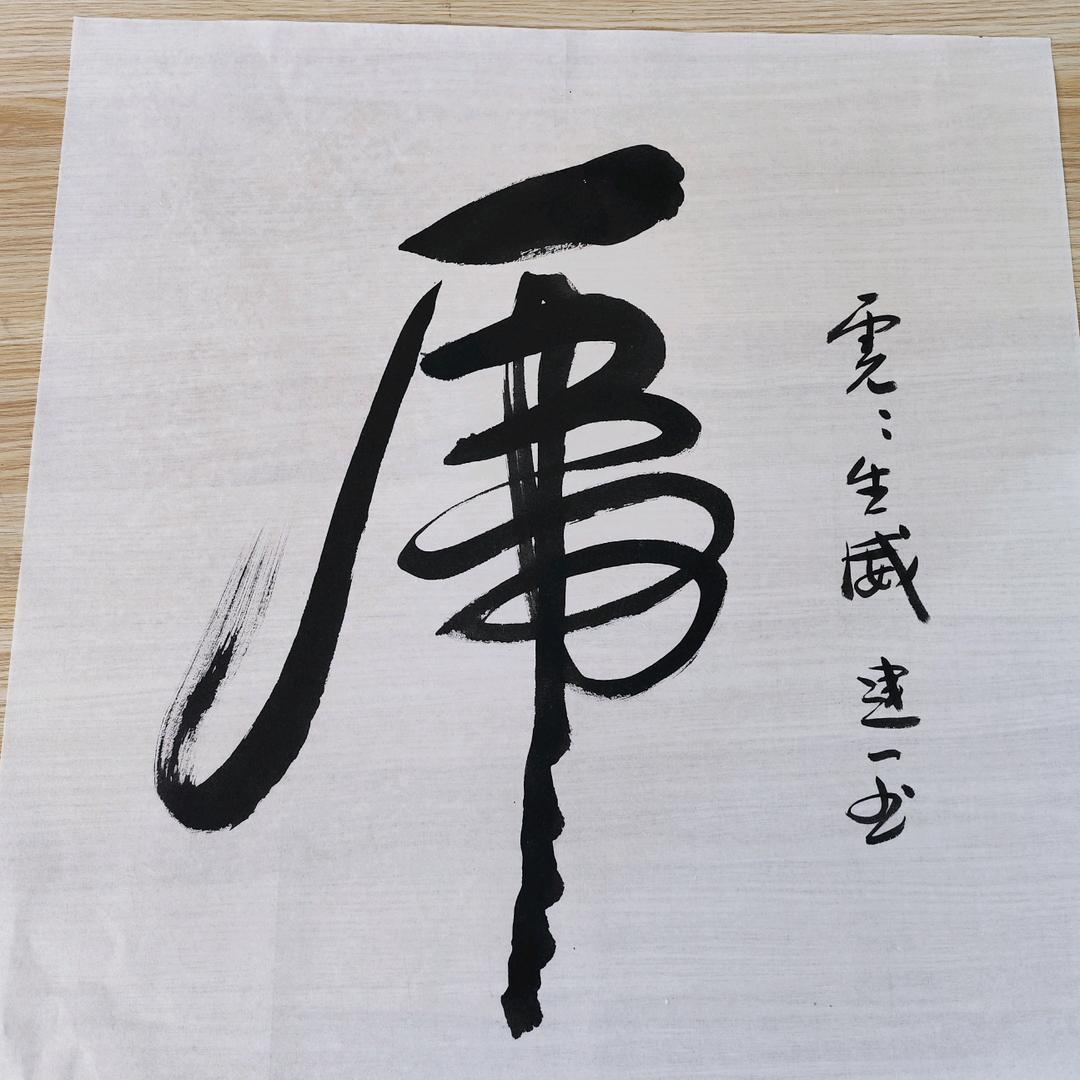 虎
虎虎生威 建一书